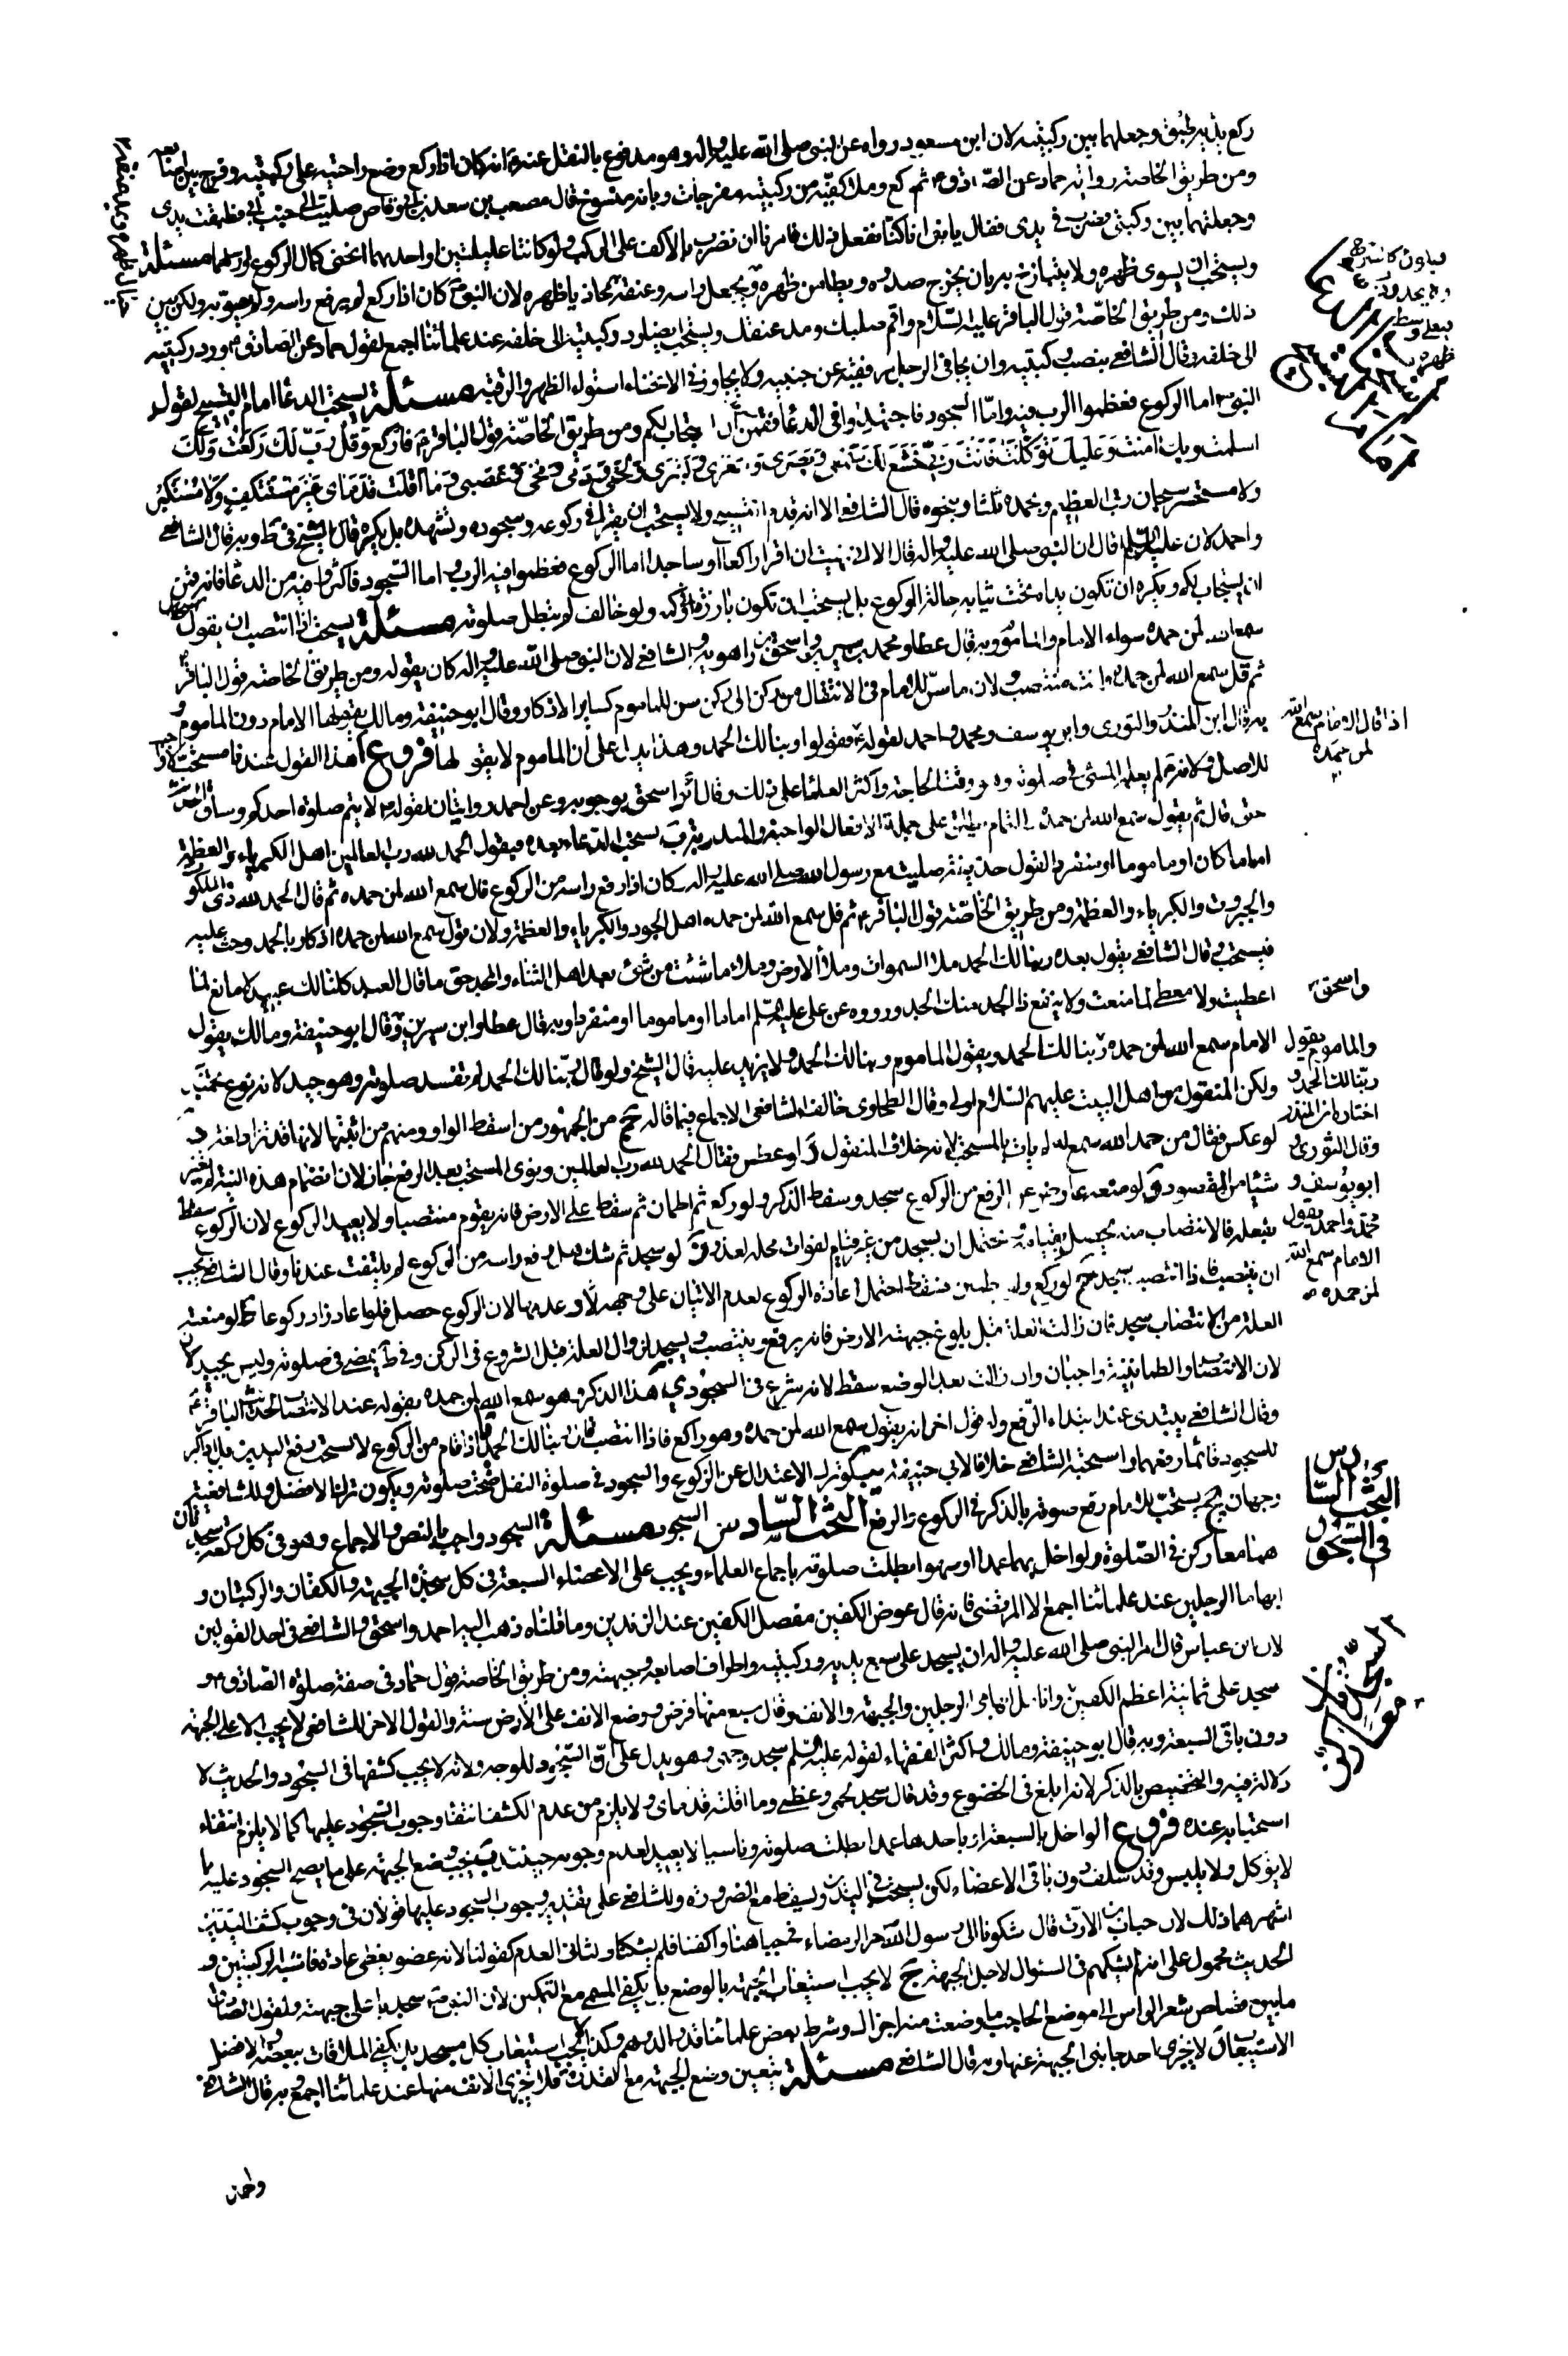 ركع يديه طبق وجعلهما بين ركبتيه لان ابن مسعود رواه عن النبي صلى الله عليه واله وهو مدفوع بالنقل عنه وانه كان اذا ركع وضع راحتيه على ركبتيه وفرج بين اصابعه
ومن طريق الخاصة رواية حماد عن الصادق ثم ركع وملأ كفيه من ركبتيه مفرجات وبانه منسوخ قال مصعب بن سعد بن ابي وقاص صليت الى جنب ابي فطبقت يدي
وجعلتهما بين ركبتي فضرب في يدي فقال يا بني انا كنا نفعل ذلك فامرنا ان نضرب بالاكف على الركب ولو كانتا عليلتين او احديهما انحنى كمال الركوع وارسلهما مسئلة
ويستحب ان يسوى ظهره ولا يتبازخ به بان يخرج صدره ويطامن ظهره ويجعل راسه وعنقه محاذيا ظهره لان النبي كان اذا ركع لم يرفع راسه ولم يصوبه ولكن بين
ذلك ومن طريق الخاصة قول الباقر عليه السلام واقم صلبك ومد عنقك ويستحب ايضا رد ركبتيه الى خلفه عند علمائنا اجمع لقول حماد عن الصادق ورد ركبتيه
الى خلفه وقال الشافعي ينصب ركبتيه وان يجافي الرجل مرفقيه عن جنبيه ولا يجاوز في الانحناء استواء الظهر والرقبة مسئلة يستحب الدعا امام التسبيح لقول
النبي اما الركوع فعظموا الرب فيه واما السجود فاجتهدوا في الدعا فقمن ان يستجاب لكم ومن طريق الخاصة قول الباقر فاركع وقل رب لك ركعت ولك
اسلمت وبك امنت وعليك توكلت فانت ربي خشع لك سمعي وبصري وشعري وبشري ولحمي ودمي ومخي وعصبي وما اقلت قدماي غير مستنكف ولا مستكبر
ولا مستحسر سبحان ربي العظيم وبحمده ثلثا وبنحوه قال الشافعي الا انه قدم التسبيح ولا يستحب ان يقرا في ركوعه وسجوده وتشهده بل يكره قال الشيخ في ط وبه قال الشافعي
واحمد لان عليا قال ان النبي صلى الله عليه واله قال الا اني نهيت ان اقرا راكعا او ساجدا اما الركوع فعظموا فيه الرب واما السجود فاكثروا فيه من الدعا فانه قمن
ان يستجاب لكم ويكره ان تكون يداه تحت ثيابه حالة الركوع بل يستحب ان تكون بارزة او في كمه ولو خالف لم تبطل صلوته مسئلة يستحب اذا انتصب ان يقول
سمع الله لمن حمده سواء الامام والماموم وبه قال عطا ومحمد بن سيرين واسحق بن راهويه والشافعي لان النبي صلى الله عليه واله كان يقوله ومن طريق الخاصة قول الباقر
ثم قل سمع الله لمن حمده وانت منتصب ولان ما سن للامام في الانتقال من ركن الى ركن سن للماموم كساير الاذكار وقال ابو حنيفة ومالك يقولها الامام دون الماموم و
به قال ابن المنذر والثوري وابو يوسف ومحمد واحمد لقوله فقولوا ربنا لك الحمد وهذا يدل على ان الماموم لا يقولها فروع ا هذا القول عندنا مستحب
للاصل ولانه لم يعلمه المسئ في صلوته وهو وقت الحاجة واكثر العلماء على ذلك وقال اسحق بوجوبه وعن احمد روايتان لقوله لا يتم صلوة احدكم وساق الحديث
حتى قال ثم يقول سمع الله لمن حمده
اماما كان او ماموما او منفردا لقول حذيفة صليت مع رسول الله صلى الله عليه واله كان اذا رفع راسه من الركوع قال سمع الله لمن حمده ثم قال الحمد لله ذي الملكوت
والجبروت والكبرياء والعظمة ومن طريق الخاصة قول الباقر ثم قل سمع الله لمن حمده اهل الجود والكبرياء والعظمة ولان قول سمع الله لمن حمده اذكار بالحمد وحث عليه
فيستحب وقال الشافعي يقول بعده ربنا لك الحمد ملأ السموات وملأ الارض وملأ ما شئت من شئ بعد اهل الثناء والمجد حق ما قال العبد كلنا لك عبيد لا مانع لما
اعطيت ولا معطي لما منعت ولا ينفع ذا الجد منك الجد ورووه عن علي عليه السلم اماما او ماموما او منفردا وبه قال عطا وابن سيرين وقال ابو حنيفة ومالك يقول
الامام سمع الله لمن حمده ربنا لك الحمد ويقول الماموم ربنا لك الحمد ولا يزيد عليه قال الشيخ ولو قال ربنا لك الحمد لم تفسد صلوته وهو جيد لانه نوع تحميد
ولكن المنقول عن اهل البيت عليهم السلام اولى وقال الطحاوي خالف الشافعي الاجماع فيما قاله ج من الجمهور من اسقط الواو ومنهم من اثبتها لانها قد تزاد لغة د
لو عكس فقال من حمد الله سمع له لم يات بالمستحب لانه خلاف المنقول ه لو عطس فقال الحمد لله رب العالمين ونوى المستحب بعد الرفع جاز لان انضمام هذه النية لم يغير
شيئا من المقصود و لو منعه عارض عن الرفع من الركوع سجد وسقط الذكر ولو ركع ثم اطمان ثم سقط على الارض فانه يقوم منتصبا ولا يعيد الركوع لان الركوع سقط
بفعله فالانتصاب منه يحصل بقيامه ويحتمل ان يسجد من غير قيام لفوات محله لعذر ز لو سجد ثم شك هل رفع راسه من الركوع لم يلتفت عندنا وقال الشافعي يجب
ان ينتصب فاذا انتصب سجد ح لو ركع ولم يطمئن فسقط احتمل اعادة الركوع لعدم الاتيان على وجهه وعدمها لان الركوع حصل فلو اعاد زاد ركوعا ط لو منعته
العلة من الانتصاب سجد فان زالت العلة قبل بلوغ جبهته الارض فانه يرفع وينتصب ويسجد لزوال العلة قبل الشروع في الركن وفي ط يمضي في صلوته وليس بجيد
لان الانتصاب والطمانينة واجبان وان زالت بعد الوضع سقط لانه شرع في السجود ي هذا الذكر وهو سمع الله لمن حمده يقوله عند الانتصاب لحديث الباقر
وقال الشافعي يبتدئ عند ابتداء الرفع وله قول اخر انه يقول سمع الله لمن حمده وهو راكع فاذا انتصب قال ربنا لك الحمد يا اذا قام من الركوع لا يستحب رفع اليدين بل يكبر
للسجود قائما رافعهما واستحبه الشافعي خلافا لابي حنيفة يب لو ترك الاعتدال عن الركوع والسجود في صلوة النفل صحت صلوته ويكون ترك الافضل وللشافعية
وجهان يج يستحب للامام رفع صوته بالذكر في الركوع والرفع البحث السادس السجود مسئلة السجود واجب بالنص والاجماع وهو في كل ركعة سجدتان
هما معا ركن في الصلوة ولو اخل بهما عمدا او سهوا بطلت صلوته باجماع العلماء ويجب على الاعضاء السبعة في كل سجدة الجبهة والكفان والركبتان و
ابهاما الرجلين عند علمائنا اجمع الا المرتضى فانه قال عوض الكفين مفصل الكفين عند الزندين وما قلناه ذهب اليه احمد واسحق والشافعي في احد القولين
لان ابن عباس قال امر النبي صلى الله عليه واله ان يسجد على سبع يديه وركبتيه واطراف اصابعه وجبهته ومن طريق الخاصة قول حماد في صفة صلوة الصادق و
سجد على ثمانية اعظم الكفين وانامل ابهامي الرجلين والجبهة والانف وقال سبع منها فرض ووضع الانف على الارض سنة والقول الاخر للشافعي لا يجب الا على الجبهة
دون باقي السبعة وبه قال ابو حنيفة ومالك واكثر الفقهاء لقوله عليه السلم سجد وجهي وهو يدل على ان السجود للوجه ولانه لا يجب كشفها في السجود والحديث لا
دلالة فيه والتخصيص بالذكر لانه ابلغ في الخضوع وقد قال سجد لحمي وعظمي وما اقلته قدماي ولا يلزم من عدم الكشف انتفاء وجوب السجود عليها كما لا يلزم انتفاء
استحبابه عنده فروع ا لو اخل بالسبعة او باحدها عمدا بطلت صلوته وناسيا لا يعيد لعدم وجوبه حينئذ ب يجب وضع الجبهة على ما يصح السجود عليه مما
لا يؤكل ولا يلبس وقد سلف دون باقي الاعضاء لكن يستحب في اليدين ويسقط مع الضرورة وللشافعي على تقدير وجوب السجود عليها قولان في وجوب كشف اليدين
اشهرهما ذلك لان خباب بن الارت قال شكونا الى رسول الله حر الرمضاء في جباهنا واكفنا فلم يشكنا والثاني العدم كقولنا لانه عضو يغطى عادة فاشبه الركبتين و
الحديث محمول على انه لم يشكهم في السئوال لاجل الجبهة ج لا يجب استيعاب الجبهة بالوضع بل يكفي المسمى مع التمكين لان النبي سجد باعلى جبهته ولقول الصادق
ما بين قصاص شعر الراس الى موضع الحاجب ما وضعت منه اجزاك وشرط بعض علمائنا قدر الدرهم وكذا لا يجب استيعاب كل مسجد بل يكفي الملاقاة ببعضه والافضل
الاستيعاب د لا يجزي احد جانبي الجبهة عنها وبه قال الشافعي مسئلة يتعين وضع الجبهة مع القدرة فلا يجزي الانف منها عند علمائنا اجمع وبه قال الشافعي
اذا قال الامام سمع الله
لمن حمده
واسحق
والماموم يقول
ربنا لك الحمد و
اختاره ابن المنذر
وقال الثوري و
ابو يوسف و
محمد واحمد يقول
الامام سمع الله
لمن حمده
البحث السادس
في السجود
السجدتان
معا ركن